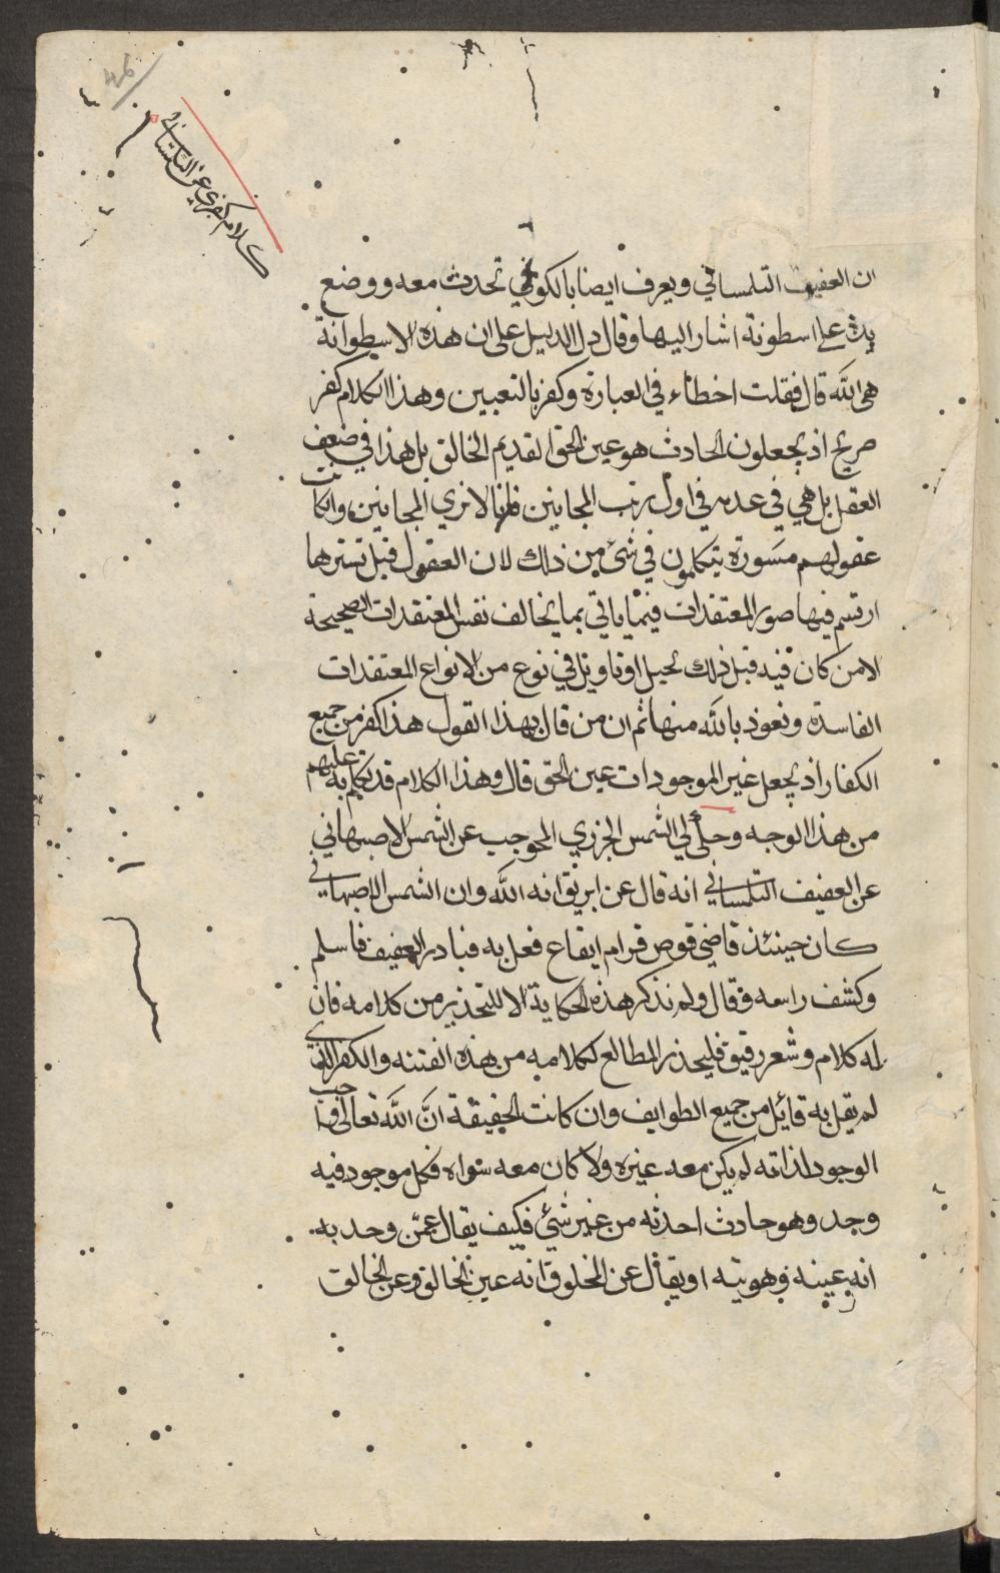 46
كلام كفري عن التلمساني
ان العفيف التلمساني ويعرف ايضا بالكوفي تحدث معه ووضع
يده على اسطونة اشار اليها وقال دل الدليل على ان هذه الاسطوانة
هي الله قال فقلت اخطاء في العبارة وكفر بالتعيين وهذا الكلام كفر
صريح اذ يجعلون الحادث هو عين الحق القديم الخالق بل هذا في ضعف
العقل بل هي في عدم في اول رتب المجانين فاننا لا نري المجانين وان كانت
عقولهم مستورة يتكلمون في شئ من ذلك لان العقول قبل تسترها
ارتسم فيها صور المعتقدات فيما ياتي بما يخالف نفس المعتقدات الصحيحة
الا من كان قيد قبل ذلك تحيل اوتاويل في نوع من الانواع المعتقدات
الفاسدة ونعوذ بالله منها ثم ان من قال بهذا القول هذا كفر من جميع
الكفار اذ يجعل غير الموجودات عين الحق قال وهذا الكلام قد تكلم به عليهم
من هذا الوجه وحكى لي الشمس الجزري الموجب عن الشمس الاصبهاني
عن العفيف التلمساني انه قال عن ابريق انه الله وان الشمس الاصبهاني
كان حينئذ قاضي قوص فرام ايقاع فعل به فبادر العفيف فاسلم
وكشف راسه فقال ولم نذكر هذه الحكاية الا للتحذير من كلامه فان
له كلام وشعر رقيق فليحذر المطالع لكلامه من هذه الفتنه والكفر الذي
لم يقل به قائل من جميع الطوايف وان كانت الحقيقة ان الله تعالى واجب
الوجود لذاته لم يكن معه غيره ولا كان معه سواه فكل موجود فيه
وجد وهو حادث احدثه من غير شئ فكيف يقال عمن وجد به
انه بعينه وهويته او يقال عن المخلوق انه عين الخالق وعن الخالق